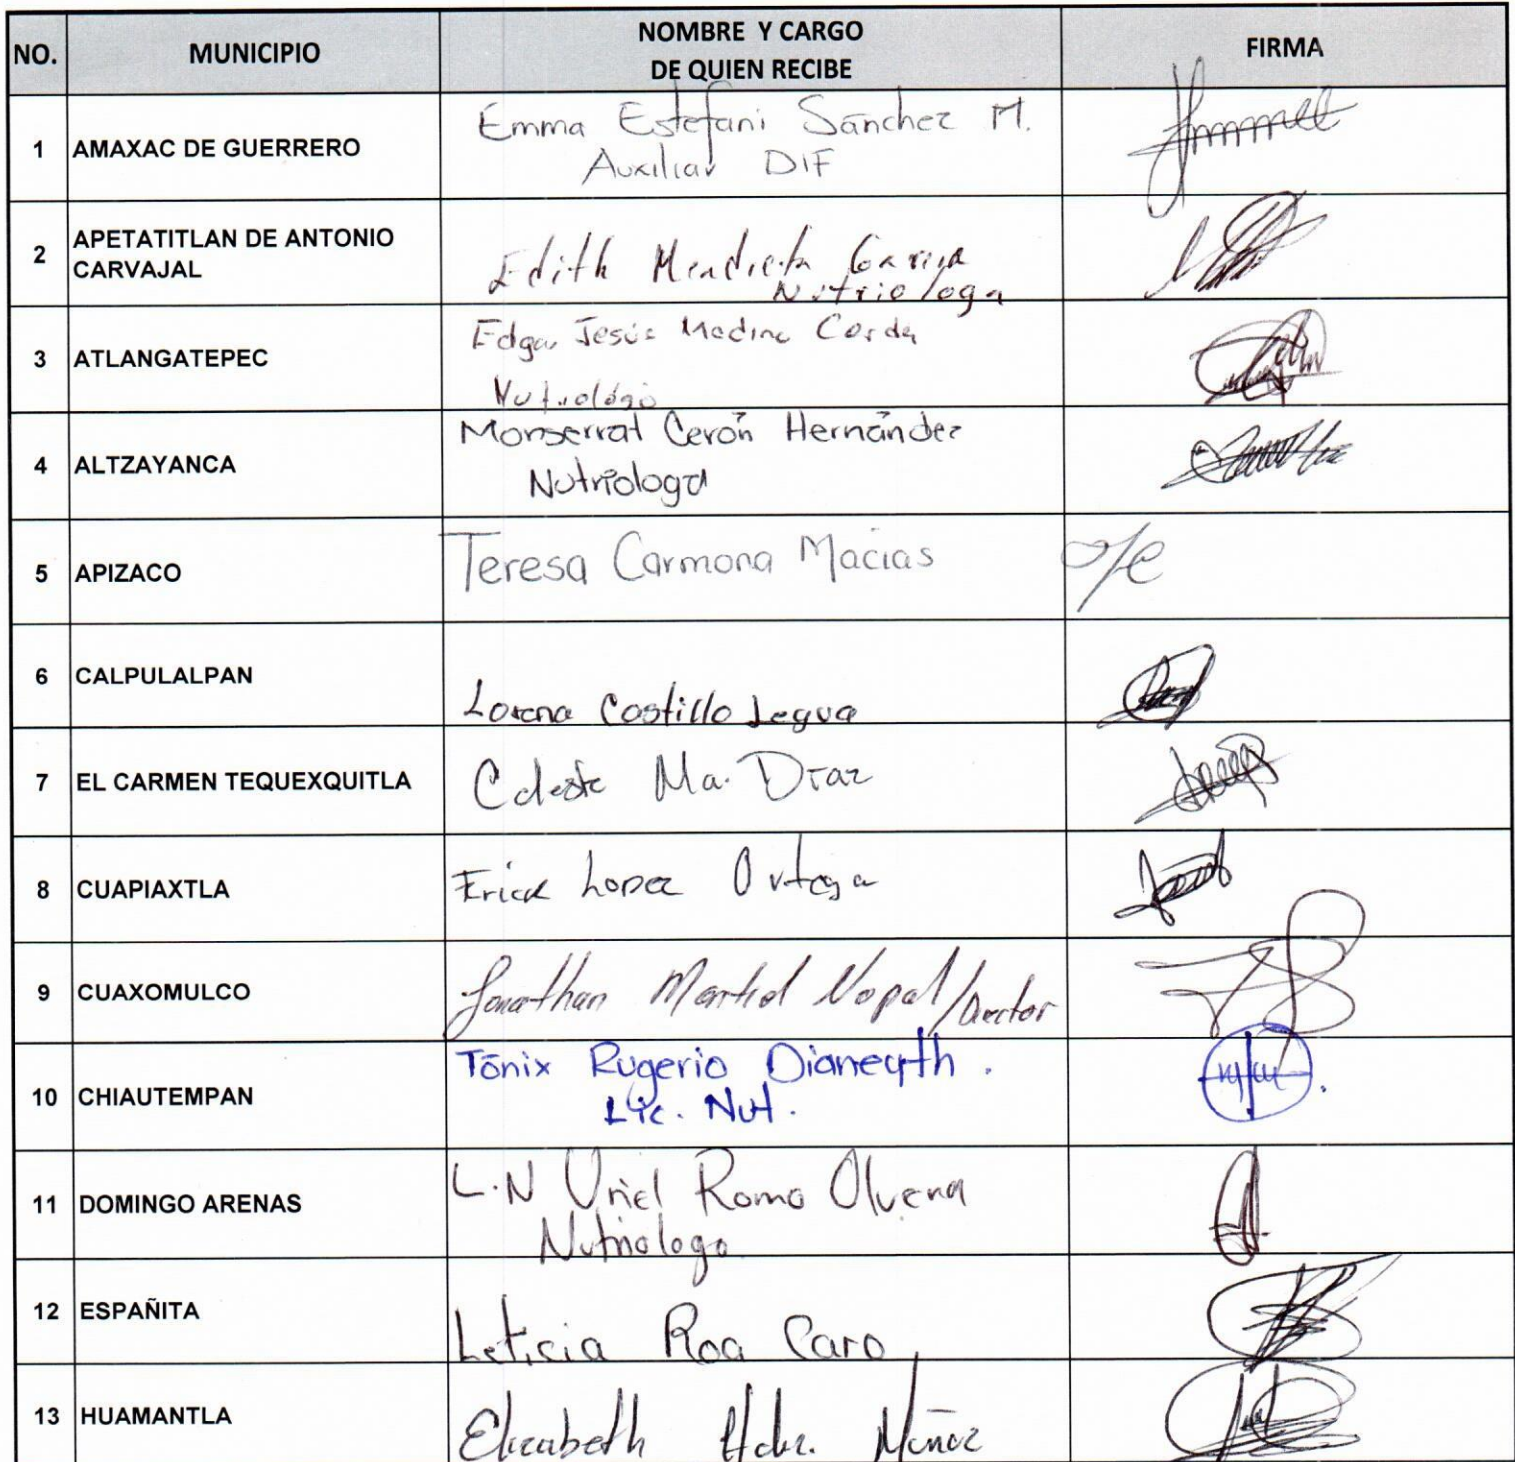 NO. MUNICIPIO NOMBRE Y CARGO DE QUIEN RECIBE FIRMA
1 AMAXAC DE GUERRERO Emma Estefani Sánchez M.
Auxiliar DIF
2 APETATITLAN DE ANTONIO CARVAJAL Edith Mendieta Garcia
Nutriologa
3 ATLANGATEPEC Edgar Jesús Medina
Nutriológo
4 ALTZAYANCA Monserrat Cerón Hernández
Nutriologa
5 APIZACO Teresa Carmona Macias
6 CALPULALPAN Lorena Castillo
7 EL CARMEN TEQUEXQUITLA Celeste Ma. Díaz
8 CUAPIAXTLA Erick Lopez Ortega
9 CUAXOMULCO Jonathan Nopal/Director
10 CHIAUTEMPAN Tōnix Rugerio Dianeyth.
Lic. Nut.
11 DOMINGO ARENAS L.N Uriel Romo Olvera
Nutriologo
12 ESPAÑITA Leticia Roa Caro
13 HUAMANTLA Elizabeth Hdz. Muñoz